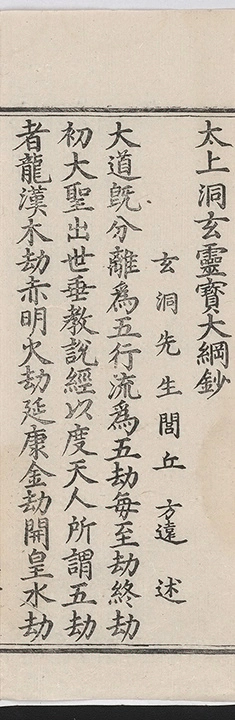 太上洞玄靈寶大綱鈔
玄洞先生閭丘方遠述
大道旣分離為五行流為五劫每至劫終劫
初大聖出世垂教說經以度天人所謂五劫
者龍漢木劫赤明火劫延康金劫開皇水劫